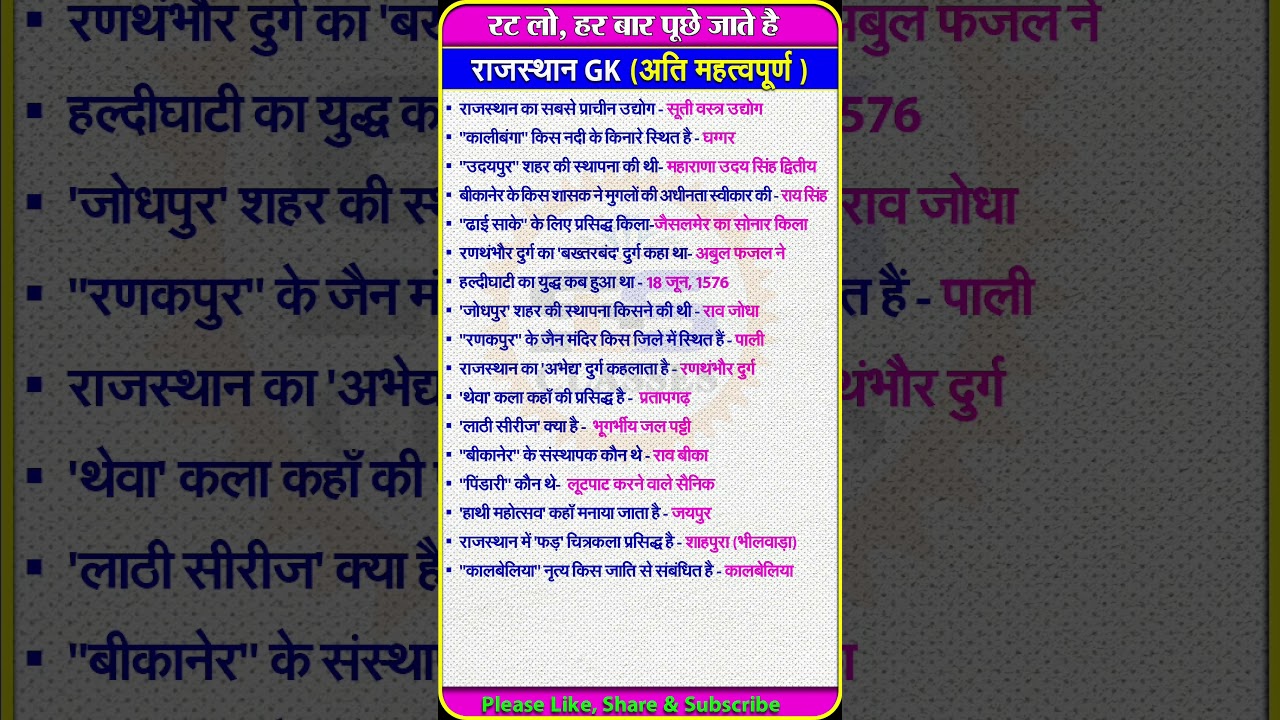 रट लो, हर बार पूछे जाते है
राजस्थान GK (अति महत्वपूर्ण )
▪ राजस्थान का सबसे प्राचीन उद्योग - सूती वस्त्र उद्योग
▪ "कालीबंगा" किस नदी के किनारे स्थित है - घग्गर
▪ "उदयपुर" शहर की स्थापना की थी- महाराणा उदय सिंह द्वितीय
▪ बीकानेर के किस शासक ने मुगलों की अधीनता स्वीकार की - राय सिंह
▪ "ढाई साके" के लिए प्रसिद्ध किला-जैसलमेर का सोनार किला
▪ रणथंभौर दुर्ग का 'बख्तरबंद' दुर्ग कहा था- अबुल फजल ने
▪ हल्दीघाटी का युद्ध कब हुआ था - 18 जून, 1576
▪ 'जोधपुर' शहर की स्थापना किसने की थी - राव जोधा
▪ "रणकपुर" के जैन मंदिर किस जिले में स्थित हैं - पाली
▪ राजस्थान का 'अभेद्य' दुर्ग कहलाता है - रणथंभौर दुर्ग
▪ 'थेवा' कला कहाँ की प्रसिद्ध है - प्रतापगढ़
▪ 'लाठी सीरीज' क्या है - भूगर्भीय जल पट्टी
▪ "बीकानेर" के संस्थापक कौन थे - राव बीका
▪ "पिंडारी" कौन थे- लूटपाट करने वाले सैनिक
▪ 'हाथी महोत्सव' कहाँ मनाया जाता है - जयपुर
▪ राजस्थान में 'फड़' चित्रकला प्रसिद्ध है - शाहपुरा (भीलवाड़ा)
▪ "कालबेलिया" नृत्य किस जाति से संबंधित है - कालबेलिया
Please Like, Share & Subscribe